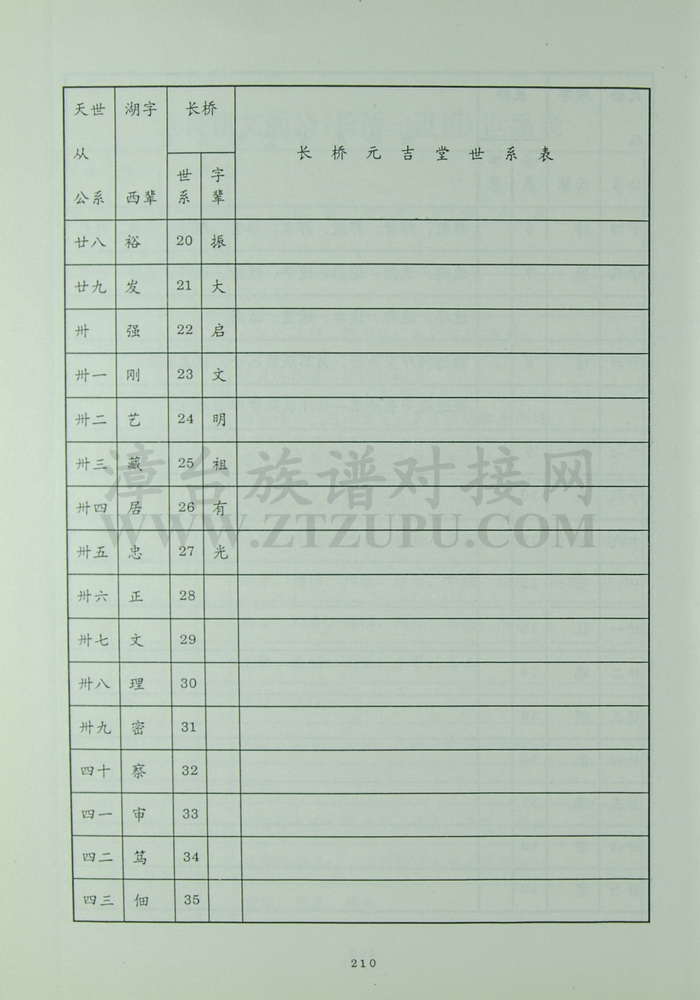 天世 湖字 长桥
从 长桥元吉堂世系表
公系 西辈 世系 字辈
廿八 裕 20 振
廿九 发 21 大
卅 强 22 启
卅一 刚 23 文
卅二 艺 24 明
卅三 藏 25 祖
卅四 居 26 有
卅五 忠 27 光
卅六 正 28
卅七 文 29
卅八 理 30
卅九 密 31
四十 察 32
四一 审 33
四二 笃 34
四三 佃 35
漳台族谱对接网
WWW.ZTZUPU.COM
210